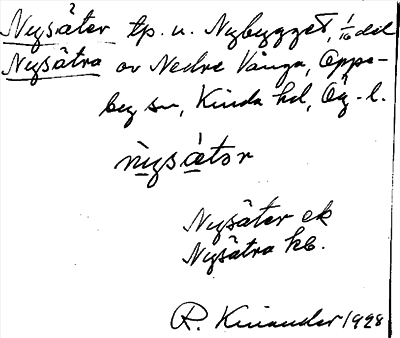 Nysäter tp. u. Nybygget, 1/16 del
Nysätra av Nedre Vånga, Oppe-
by sn, Kinda hd, Ög. l.
nysætər
Nysäter ek
Nysätra kb.
R. Kinander 1928